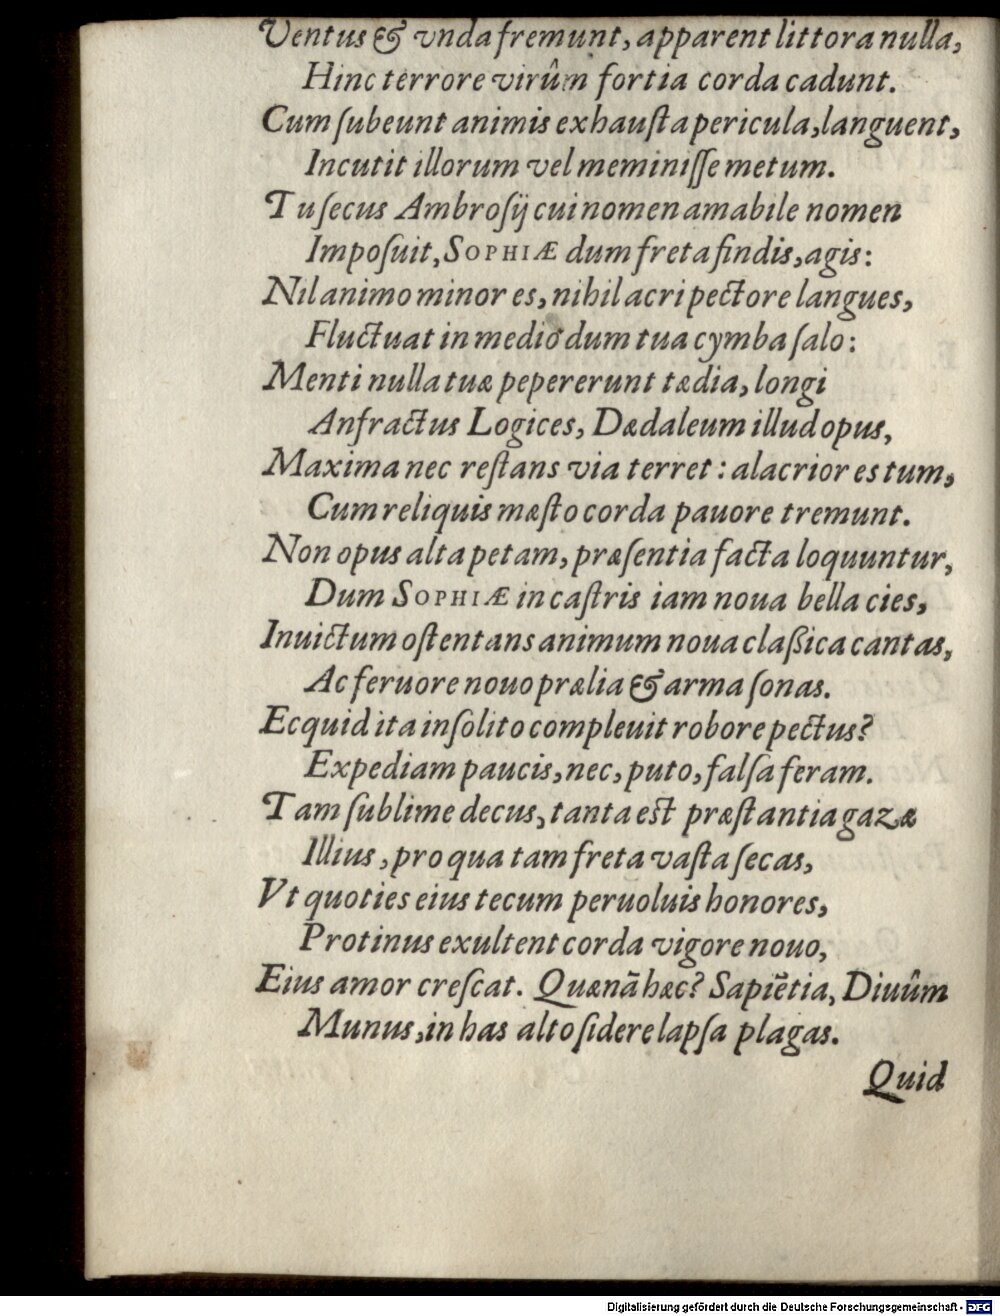 Ventus & vnda fremunt, apparent littora nulla,
Hinc terrore virûm fortia corda cadunt.
Cum ſubeunt animis exhauſta pericula, languent,
Incutit illorum vel meminiſſe metum.
Tu ſecus Ambroſij cui nomen amabile nomen
Impoſuit, SOPHIÆ dum freta findis, agis:
Nil animo minor es, nihil acri pectore langues,
Fluctuat in medio dum tua cymba ſalo:
Menti nulla tuæ pepererunt tædia, longi
Anfractus Logices, Dædaleum illud opus,
Maxima nec reſtans via terret: alacrior es tum,
Cum reliquis mæſto corda pauore tremunt.
Non opus alta petam, præſentia facta loquuntur,
Dum SOPHIÆ in caſtris iam noua bella cies,
Inuictum oſtentans animum noua claßica cantas,
Ac feruore nouo prælia & arma ſonas.
Ecquid ita inſolito compleuit robore pectus?
Expediam paucis, nec, puto, falſa feram.
Tam ſublime decus, tanta est præſtantia gazæ
Illius, pro qua tam freta vaſta ſecas,
Vt quoties eius tecum peruoluis honores,
Protinus exultent corda vigore nouo,
Eius amor creſcat. Quænā hæc? Sapiētia, Diuûm
Munus, in has alto ſidere lapſa plagas.
Quid
Digitalisierung gefördert durch die Deutsche Forschungsgemeinschaft - DFG